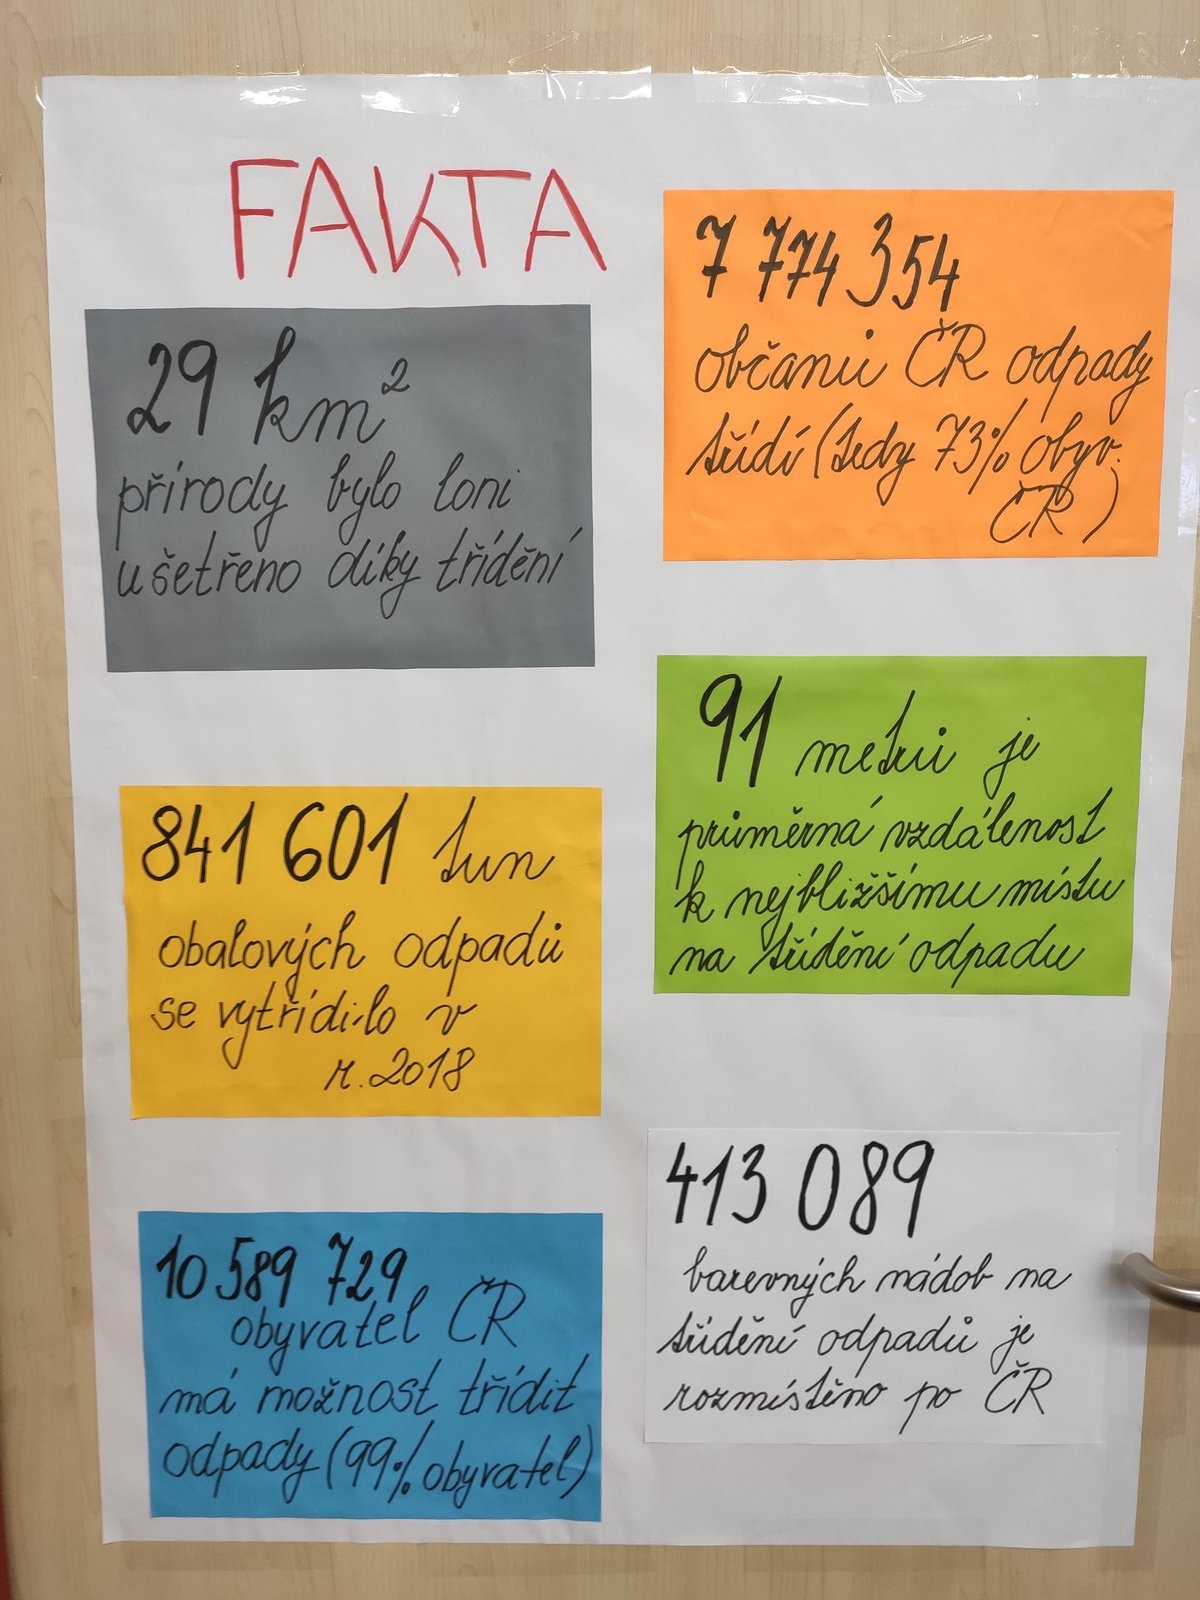 FAKTA
29 km²
přírody bylo loni
ušetřeno díky třídění
841 601 tun
obalových odpadů
se vytřídilo v
r. 2018
10 589 729
obyvatel ČR
má možnost třídit
odpady (99% obyvatel)
7 774 354
občanů ČR odpady
třídí (tedy 73% obyv.
ČR)
91 metrů je
průměrná vzdálenost
k nejbližšímu místu
na třídění odpadu
413 089
barevných nádob na
třídění odpadů je
rozmístěno po ČR